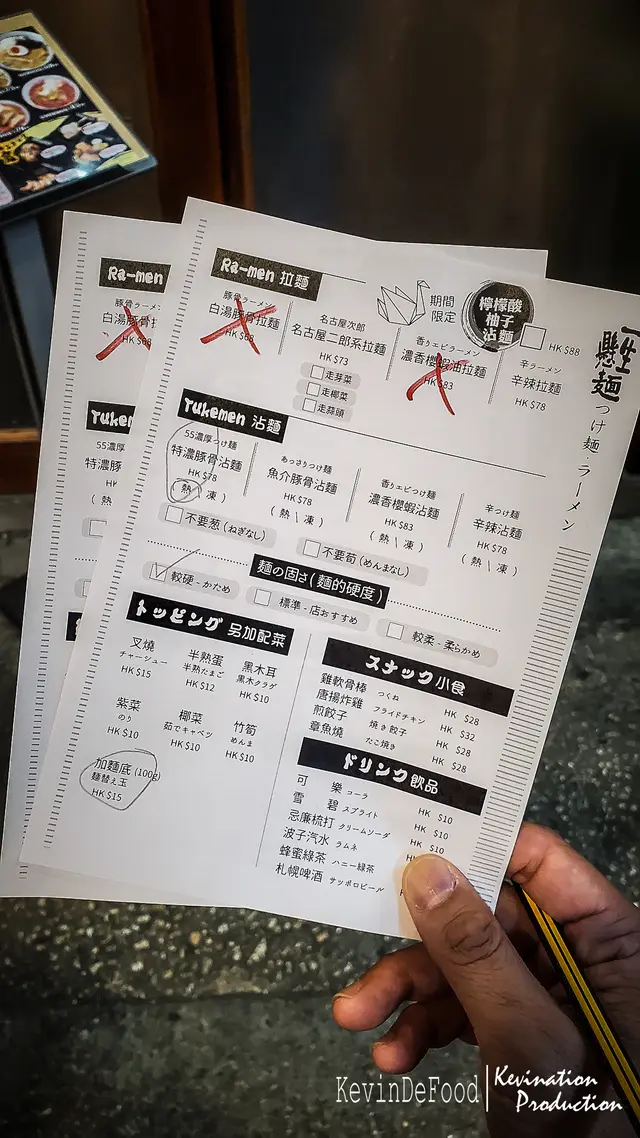 Ra-men 拉麵
豚骨ラーメン
白湯豚骨拉麵
HK $68
名古屋次郎
名古屋二郎系拉麵
HK $73
走芽菜
走椰菜
走蒜頭
期間
限定
香りエビラーメン
濃香櫻蝦油拉麵
HK $83
檸檬酸
柚子
沾麵
HK $88
辛ラーメン
辛辣拉麵
HK $78
懸麵
つけ麺 ラーメン
Tukemen 沾麵
55濃厚つけ麺
特濃豚骨沾麵
HK $78
( 熱 \ 凍 )
あっさりつけ麺
魚介豚骨沾麵
HK $78
( 熱 \ 凍 )
香りエビつけ麺
濃香櫻蝦沾麵
HK $83
( 熱 \ 凍 )
辛つけ麺
辛辣沾麵
HK $78
( 熱 \ 凍 )
不要葱 (ねぎなし)
不要筍 (めんまなし)
麺の固さ(麵的硬度)
較硬 - かため
標準 - 店おすすめ
較柔 - 柔らかめ
トッピング 另加配菜
叉燒
チャーシュー
HK $15
半熟蛋
半熟たまご
HK $12
黑木耳
黒木クラゲ
HK $10
紫菜
のり
HK $10
椰菜
茹でキャベツ
HK $10
竹筍
めんま
HK $10
加麵底 (100g)
麺替え玉
HK $15
スナック 小食
雞軟骨棒 つくね HK $28
唐揚炸雞 フライドチキン HK $32
煎餃子 焼き餃子 HK $28
章魚燒 たこ焼き HK $28
ドリンク 飲品
可樂 コーラ HK $10
雪碧 スプライト HK $10
忌廉梳打 クリームソーダ HK $10
波子汽水 ラムネ
蜂蜜綠茶 ハニー緑茶
札幌啤酒 サッポロビール
Ra-men
豚骨ラーメン
白湯豚骨
Tukem
55濃厚つ
特濃豚
HK
( 熱
KevinDeFood
Kevination
Production